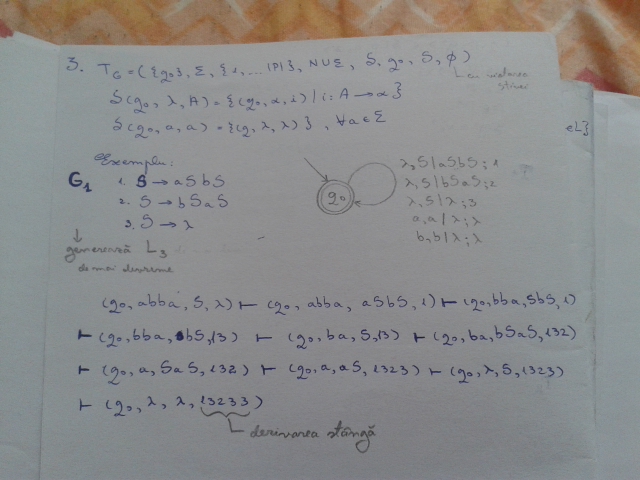 3. T_G = ({q₀}, Σ, {1,...|P|}, N∪Σ, δ, q₀, S, ∅)
cu vidarea stivei
δ(q₀, λ, A) = {(q₀, α, i) / i: A → α}
δ(q₀, a, a) = {(q₀, λ, λ)}, ∀a ∈ Σ
eL}
Exemplu:
G₁ 1. S → aSbS
2. S → bSaS
3. S → λ
generează L₃
de mai devreme
q₀
λ, S / aSbS ; 1
λ, S / bSaS ; 2
λ, S / λ ; 3
a, a / λ ; λ
b, b / λ ; λ
(q₀, abba, S, λ) ⊢ (q₀, abba, aSbS, 1) ⊢ (q₀, bba, SbS, 1)
⊢ (q₀, bba, bS, 13) ⊢ (q₀, ba, S, 13) ⊢ (q₀, ba, bSaS, 132)
⊢ (q₀, a, SaS, 132) ⊢ (q₀, a, aS, 1323) ⊢ (q₀, λ, S, 1323)
⊢ (q₀, λ, λ, 13233)
derivarea stângă